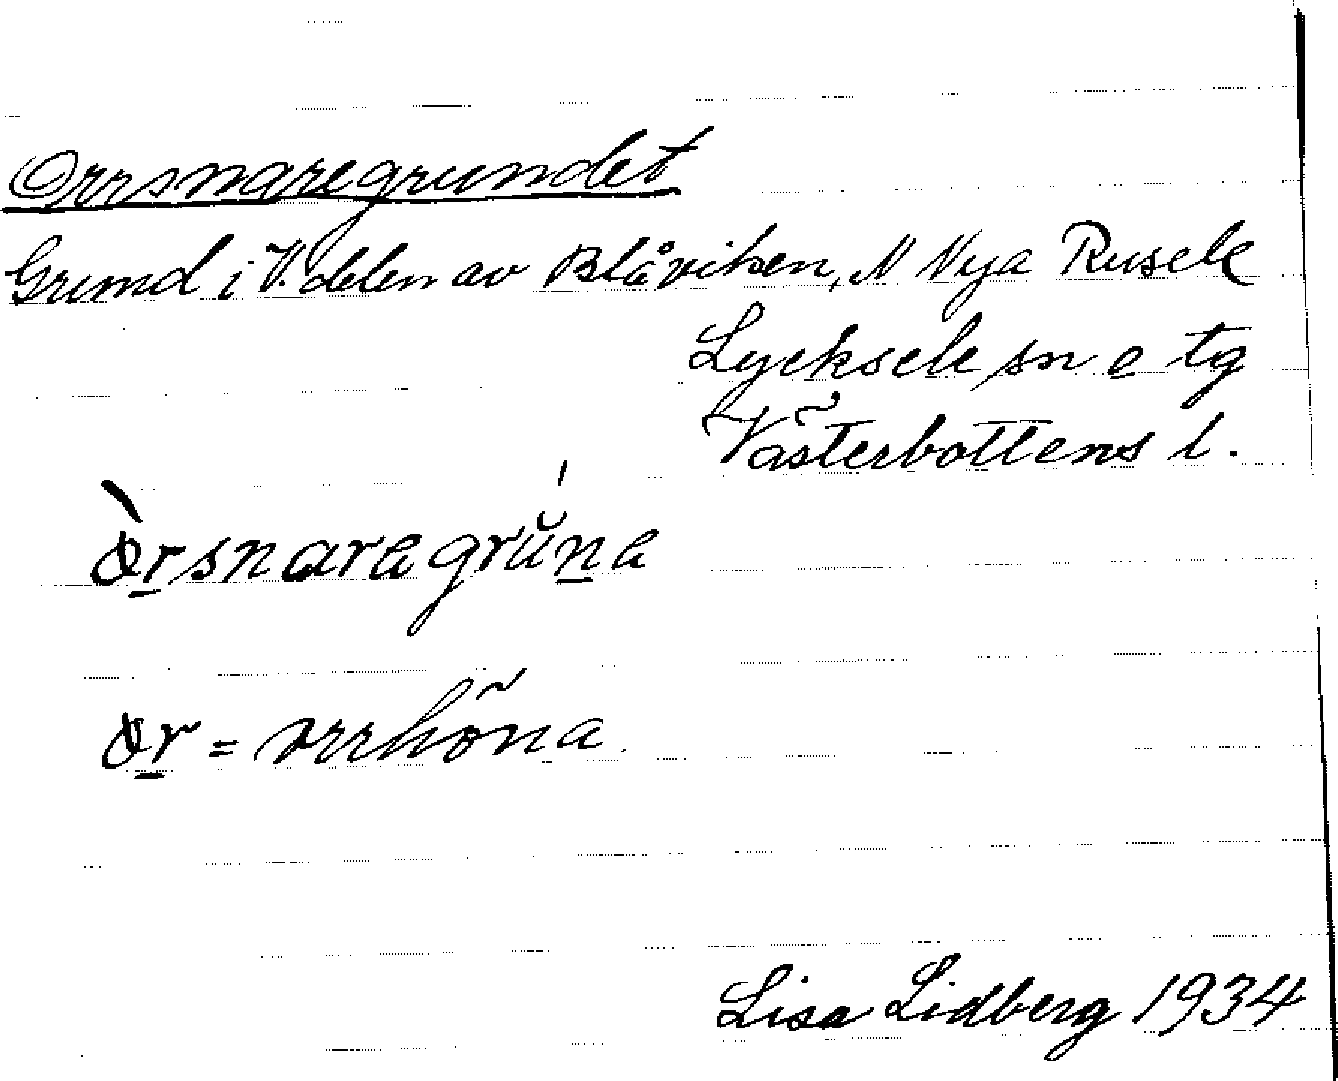 Orrsnaregrundet
Grund i V. delen av Blåviken, N Nya Rusele
Lycksele sn o tg
Västerbottens l.
òr̲snaragrŭ́n̲a
or̲ = orrhöna.
Lisa Lidberg 1934